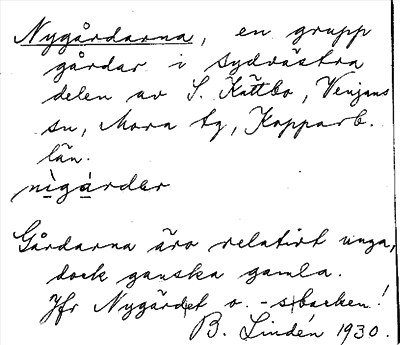 Nygårdarna, en grupp
gårdar i sydvästra
delen av S. Kättbo, Venjans
sn, Mora tg, Kopparb.
län.
nìgárdər
Gårdarna äro relativt unga,
dock ganska gamla.
Jfr Nygårdet o. -sbacken!
B. Lindén 1930.